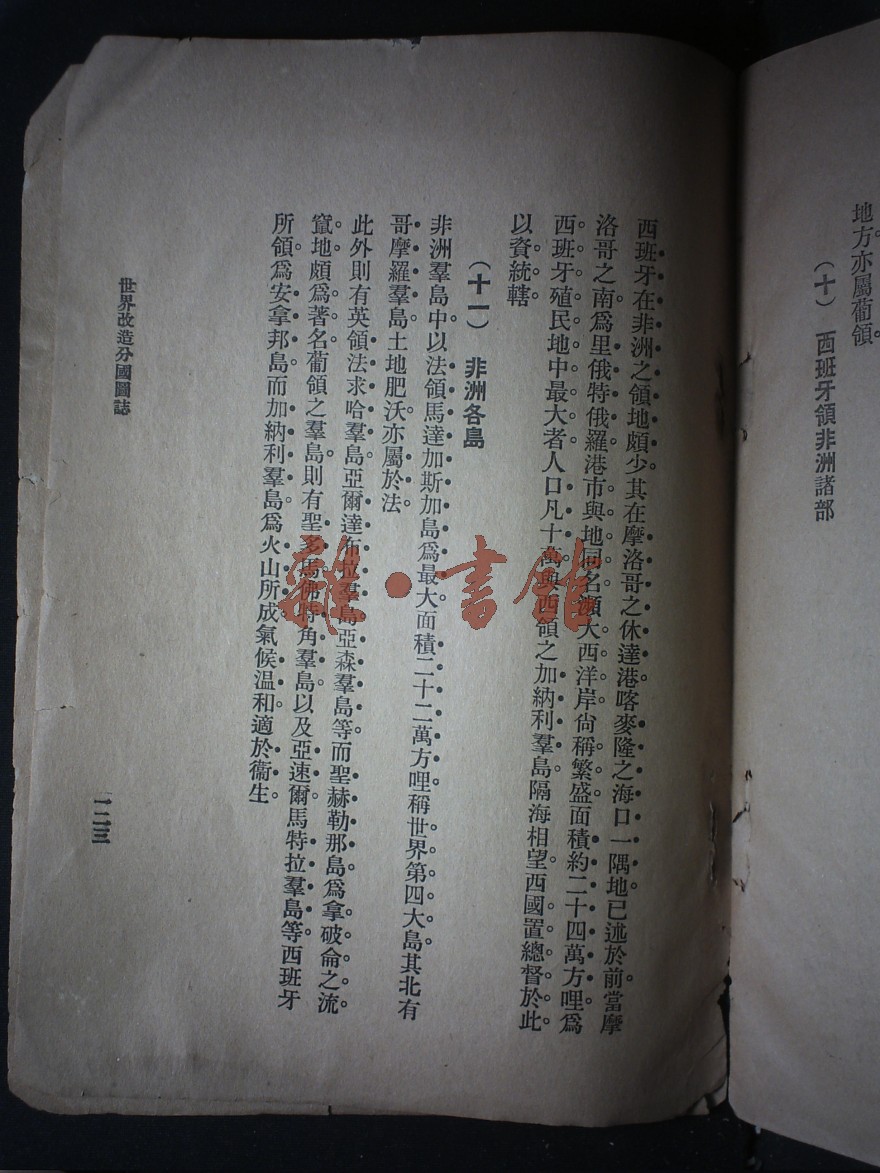 地方亦屬葡領。
（十）　西班牙領非洲諸部
西班牙在非洲之領地頗少。其在摩洛哥之休達港喀麥隆之海口一隅地已述於前。當摩
洛哥之南。爲里俄特俄羅港市與地同名。瀕大西洋岸尙稱繁盛。面積約二十四萬方哩。爲
西班牙殖民地中最大者。人口凡十萬。與西領之加納利羣島隔海相望。西國置總督於此。
以資統轄。
（十一）　非洲各島
非洲羣島中。以法領馬達加斯加島爲最大。面積二十二萬方哩。稱世界第四大島。其北有
哥摩羅羣島土地肥沃亦屬於法。
此外則有英領法求哈羣島亞爾達布拉羣島亞森羣島等。而聖赫勒那島爲拿破侖之流
竄地。頗爲著名。葡領之羣島。則有聖多馬佛特角羣島以及亞速爾馬特拉羣島等。西班牙
所領爲安拿邦島。而加納利羣島爲火山所成。氣候温和適於衞生。
世界改造分國圖誌
一二三
雜·書館